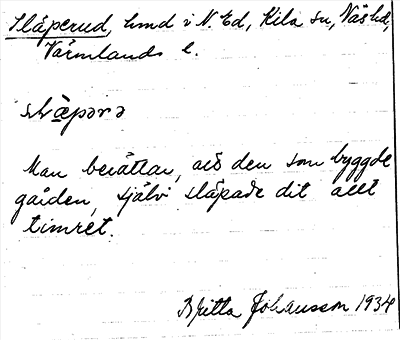 Släperud, hmd i N. Ed, Kila sn, Näs hd,
Värmlands l.
slæpərə
Man berättar, att den som byggde
gården, själv släpade dit allt
timret.
Britta Johansson 1934